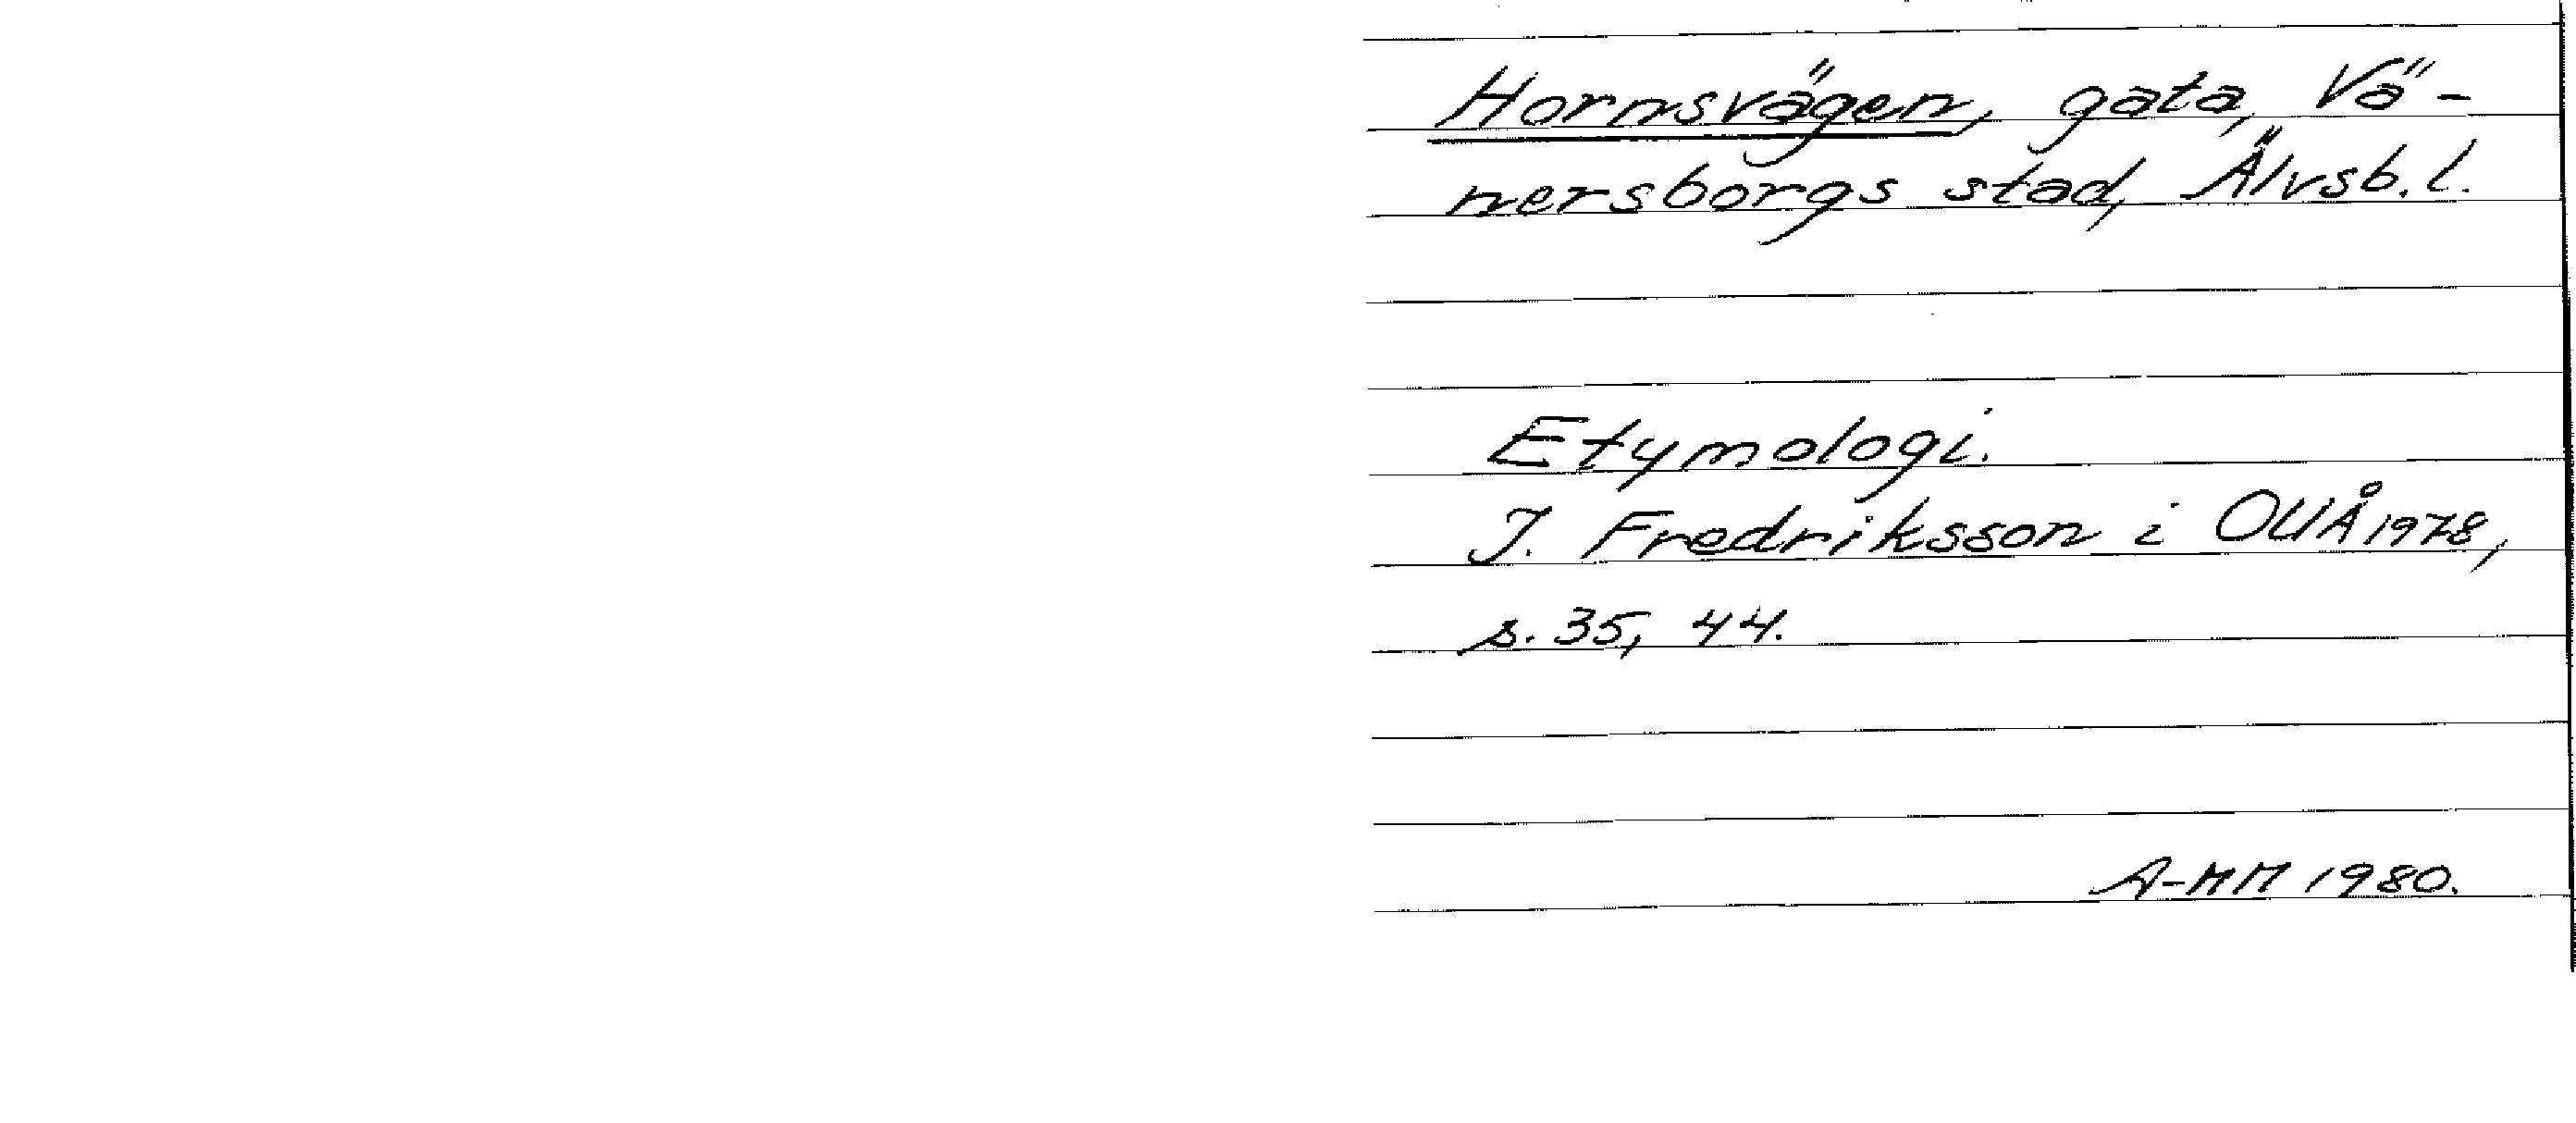 Hornsvägen, gata, Vä-
nersborgs stad, Älvsb. l.
Etymologi.
I. Fredriksson i OUÅ 1978,
s. 35, 44.
A-MM 1980.